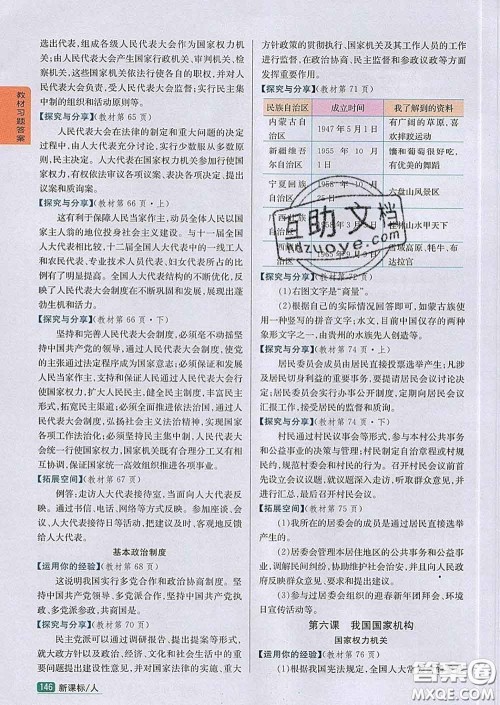 选出代表,组成各级人民代表大会作为国家权力机
关;由人民代表大会产生国家行政机关、审判机关、检
察机关,这些国家机关依法行使各自的职权,并对人
民代表大会负责,受人民代表大会监督;实行民主集
中制的组织和活动原则等。
【探究与分享】(教材第 65 页)
人民代表大会在法律的制定和重大问题的决定
过程中,由人大代表充分讨论,实行少数服从多数原
则,民主决定。在人民代表大会代表国家权力机关参加行使
国家权力中,人大代表有审议各项议案、表决各项决定、提出
议案和质询案。
【探究与分享】(教材第 66 页·上)
这有利于保障人民当家作主,动员全体人民以国
家主人翁的地位投身社会主义建设。与十一届全国
人大代表相比,十二届全国人大代表中的一线工人
和农民代表、专业技术人员代表、妇女代表所占的比
例有了明显提高。全国人大代表结构的不断优化,反
映了人民代表大会制度在不断巩固和发展,展现出蓬
勃生机和活力。
【探究与分享】(教材第 66 页·下)
坚持和完善人民代表大会制度,必须毫不动摇地
坚持中国共产党的领导,通过人民代表大会制度,使
党的主张通过法定程序成为国家意志;必须保证和发
展人民当家作主,支持和保证人民通过人民代表大会
行使国家权力,扩大人民民主,健全民主制度,丰富民
主形式;必须全面推进依法治国,通过人民代表大会
制度,弘扬社会主义法治精神,实现国家
各项工作法治化;必须坚持民主集中制,各国家机关
一体行使国家权力,国家机关既有合理分工又有相
互协调,保证国家统一高效组织推进各项事业。
【拓展空间】(教材第 67 页)
例答:走访人大代表接待室,当面向人大代表反
映。通过写信、电话、网络等方式反映。参加人大代表
座谈会、人大代表接待日等活动,把建议及时、客观地反馈
给人大代表。
基本政治制度
【运用你的经验】(教材第 68 页)
这说明我国实行多党合作和政治协商制度。共
产党领导、多党派合作,共产党执政、多党派参政。
【探究与分享】(教材第 70 页)
民主党派可以通过调研报告、提出提案等形式,
就经济社会发展中的重大问题和人民群众普遍关注
的问题提出意见建议,对国家的法律的实施、重大
方针政策的贯彻执行、国家机关及其工作人员的工作
进行监督,在政治协商、民主监督和参政议政等方面
发挥重要作用。
【探究与分享】(教材第 71 页)
民族自治区 成立时间 我了解到的资料
内蒙古自治区 1947 年 5 月 1 日 有广阔的草原,喜欢摔跤运动
新疆维吾尔自治区 1955 年 10 月 1 日 葡萄很好吃,有优美的舞蹈
宁夏回族自治区 1958 年 10 月 25 日 六盘山风景区
1958 年 3 月 5 日 桂林山水甲天下
1965 年 9 月 布达拉宫
互助文档
hdzuoye.com
【探究与分享】(教材第 72 页)
(1)右图文字是“商量”。
(2)根据自己的实际情况回答即可,如蒙古族使
用一种竖写的拼音文字;水文,目前仍使用的两种
象形文字之一,由贵州的水族先人创造。
【探究与分享】(教材第 74 页·上)
居民委员会成员由居民直接投票选举产生;凡涉
及居民切身利益的重要事项,都要经居民会议讨论决
定;居民委员会实行办事公开制度,定期向居民会议
汇报工作,接受居民的监督和质询。
【探究与分享】(教材第 74 页·下)
村民通过村民议事会等形式,参与本村公共事务
和公益事业的决策与管理。村民制定自治章程或村
规民约,规范村委会和村民行为。召开村民会议或村
民代表会议,对村里的重大事项充分发表意见,并进
行汇总,最后召开村民会议。
【拓展空间】(教材第 75 页)
(1)我所在的居委会的成员是通过居民直接选举
产生的。
(2)居委会管理本居住地区的公共事务和公益事
业,调解民间纠纷,协助维护社会治安;并向人民政
府反映群众意见、要求和提出建议。
(3)参与过居委会组织的迎新年团拜会、环境日
宣传活动等。
第六课 我国国家机构
国家权力机关
【探究与分享】(教材第 76 页)
(1)根据我国宪法规定,全国人大常
教材习题答案
146 新课标/人
答案圈
MXQE.COM